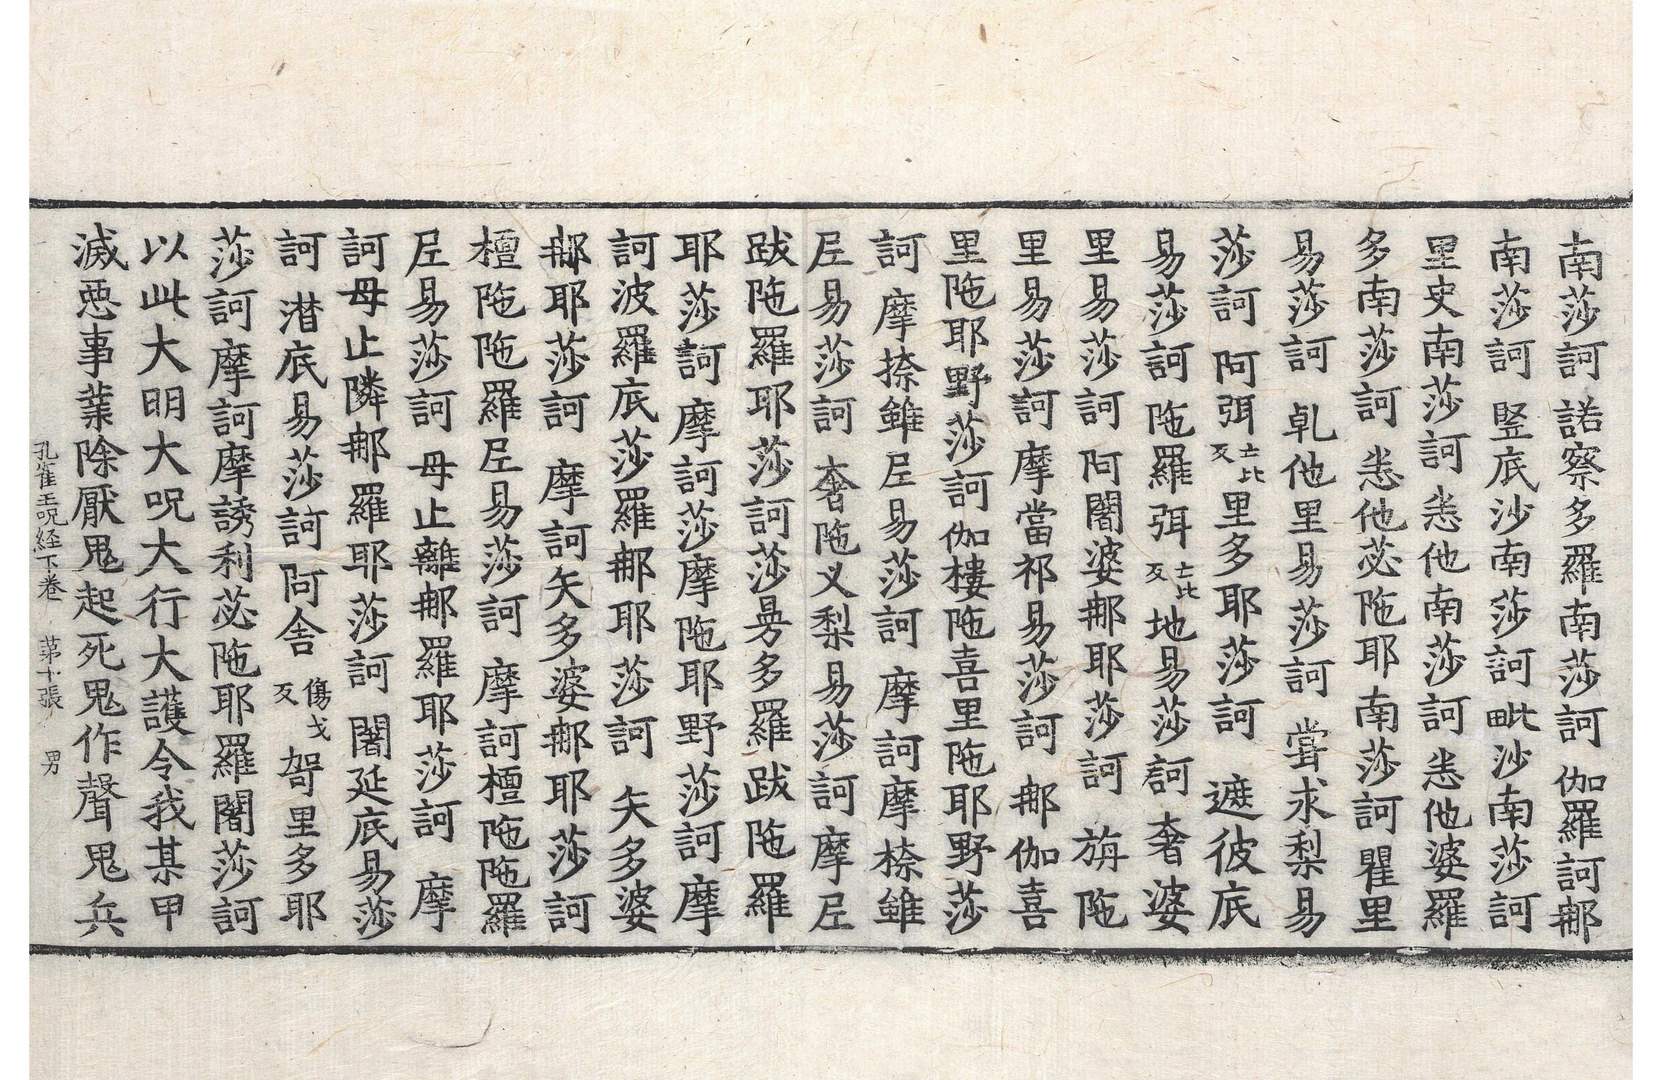 南莎訶 諾察多羅南莎訶 伽羅訶那
南莎訶 竪底沙南莎訶毗沙南莎訶
里史南莎訶 恙他南莎訶恙他婆羅
多南莎訶 恙他苾陁耶南莎訶瞿里
易莎訶 乹他里易莎訶 甞求梨易
莎訶 阿弭亡比反里多耶莎訶 遮彼底
易莎訶 陁羅弭亡比反地易莎訶 奢婆
里易莎訶 阿闥婆那耶莎訶 旃陁
里易莎訶摩當祁易莎訶 那伽喜
里陁耶野莎訶伽樓陁喜里陁耶野莎
訶 摩捺雖𡰱易莎訶 摩訶摩捺雖
𡰱易莎訶 奢陁乂梨易莎訶摩𡰱
跋陁羅耶莎訶莎昜多羅跋陁羅
耶莎訶摩訶莎摩陁耶野莎訶摩
訶波羅底莎羅那耶莎訶 矢多婆
那耶莎訶 摩訶矢多婆那耶莎訶
檀陁陁羅𡰱易莎訶 摩訶檀陁陁羅
𡰱易莎訶 母止離那羅耶莎訶 摩
訶母止隣那羅耶莎訶 闍延底易莎
訶 潜底易莎訶阿舍傷戈反袈里多耶
莎訶摩訶摩誘利苾陁耶羅闍莎訶
以此大明大呪大行大護令我某甲
滅惡事業除厭鬼起死鬼作聲鬼兵
孔雀王呪経下巻 第十張 男